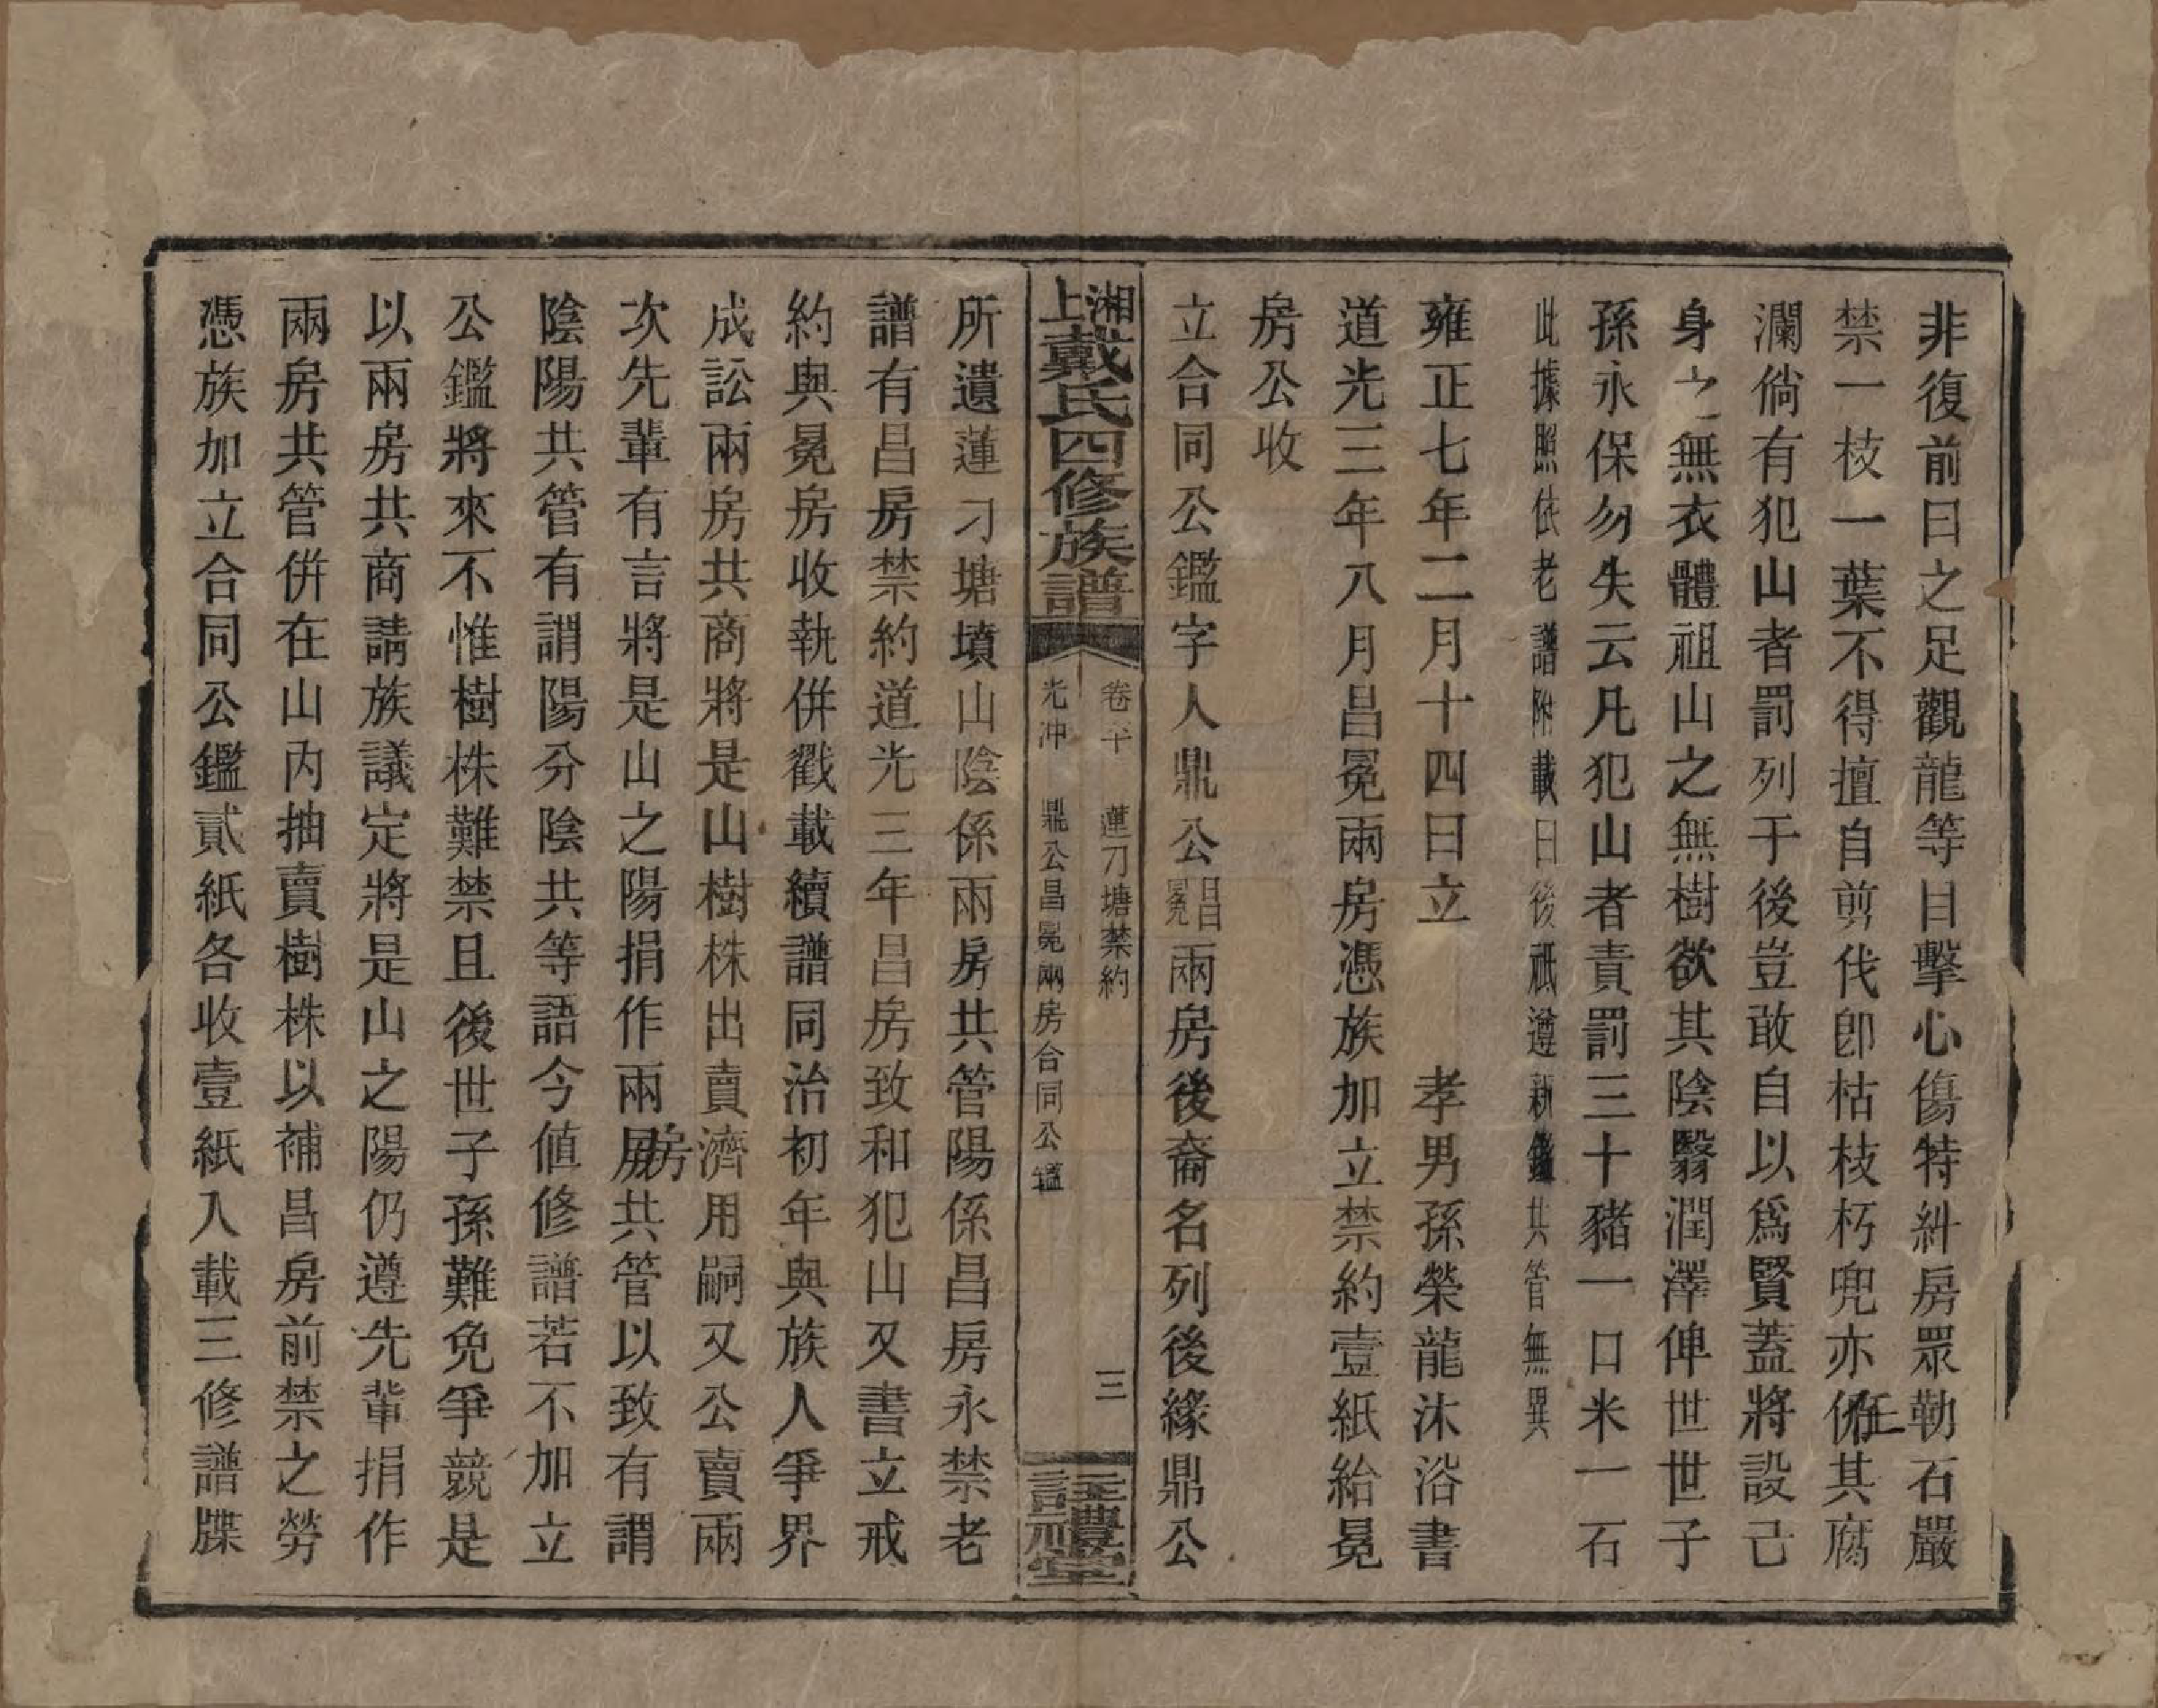 非復前日之足觀龍等目擊心傷特糾房眾勒石嚴
禁一枝一葉不得擅自剪伐卽枯枝朽兜亦任其腐
瀾倘有犯山者罰列于後豈敢自以爲賢蓋將設己
身之無衣體祖山之無樹欲其陰翳潤澤俾世世子
孫永保勿失云凡犯山者責罰三十豬一口米一石
此據照依老譜附載日後祇遵新鑑共管無異
雍正七年二月十四日立　孝男孫榮龍沐浴書
道光三年八月昌冕兩房憑族加立禁約壹紙給冕
房公收
立合同公鑑字人鼎公昌冕兩房後裔名列後緣鼎公
湘上戴氏四修族譜
卷二十　蓮刀塘禁約　三
光沖　鼎公昌冕兩房合同公鑑
註禮堂
所遺蓮刁塘墳山陰係兩房共管陽係昌房永禁老
譜有昌房禁約道光三年昌房致和犯山又書立戒
約與冕房收執併戳載續譜同治初年與族人爭界
成訟兩房共商將是山樹株出賣濟用嗣又公賣兩
次先輩有言將是山之陽捐作兩房共管以致有謂
陰陽共管有謂陽分陰共等語今値修譜若不加立
公鑑將來不惟樹株難禁且後世子孫難免爭競是
以兩房共商請族議定將是山之陽仍遵先輩捐作
兩房共管併在山內抽賣樹株以補昌房前禁之勞
憑族加立合同公鑑貳紙各收壹紙入載三修譜牒